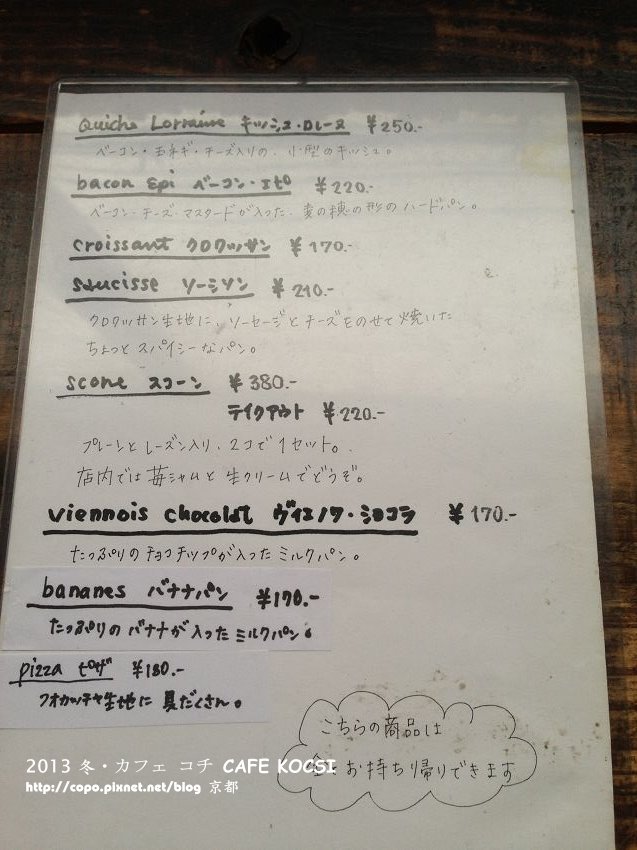 Quiche Lorraine キッシュ・ロレーヌ ¥250.-
ベーコン・玉ネギ・チーズ入りの、小型のキッシュ。
bacon Epi ベーコン・エピ ¥220.-
ベーコン・チーズ・マスタードが入った、麦の穂の形のハードパン。
croissant クロワッサン ¥170.-
saucisse ソーシソン ¥210.-
クロワッサン生地に、ソーセージとチーズをのせて焼いた
ちょっとスパイシーなパン。
scone スコーン ¥380.-
テイクアウト ¥220.-
プレーンとレーズン入り、2コで1セット。
店内では苺ジャムと生クリームでどうぞ。
viennois chocolat ヴィエノワ・ショコラ ¥170.-
たっぷりのチョコチップが入ったミルクパン。
bananes バナナパン ¥170.-
たっぷりのバナナが入ったミルクパン。
pizza ピザ ¥180.-
フォカッチャ生地に具だくさん。
こちらの商品は
お持ち帰りできます
2013 冬・カフェ コチ CAFE KOCSI
http://copo.pixnet.net/blog 京都